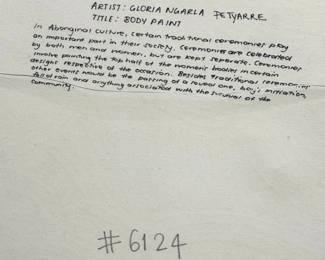 ARTIST: GLORIA NGARLA PETYARRE
TITLE: BODY PAINT
in Aboriginal culture, certain traditional ceremonies play
an important part in their society. Ceremonies are celebrated
by both men and women, but are kept seperate. Ceremonies
involve painting the top half of the women's bodies in certain
designs respective of the occasion. Besides traditional ceremonies
other events would be the passing of a loved one, boy's initiation,
fall of rain and anything associated with the survival of the
community.
#6124